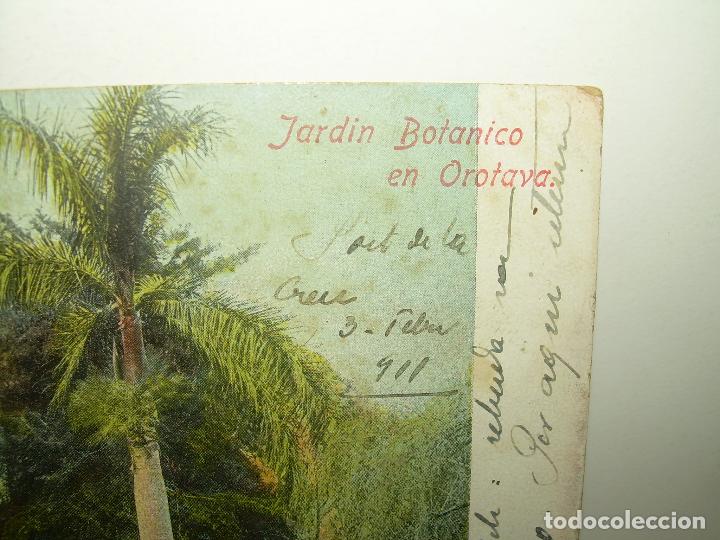 Jardin Botanico
en Orotava.
Port de la
Cruz
3 - Febr
911
Por aqui
todocoleccion.net